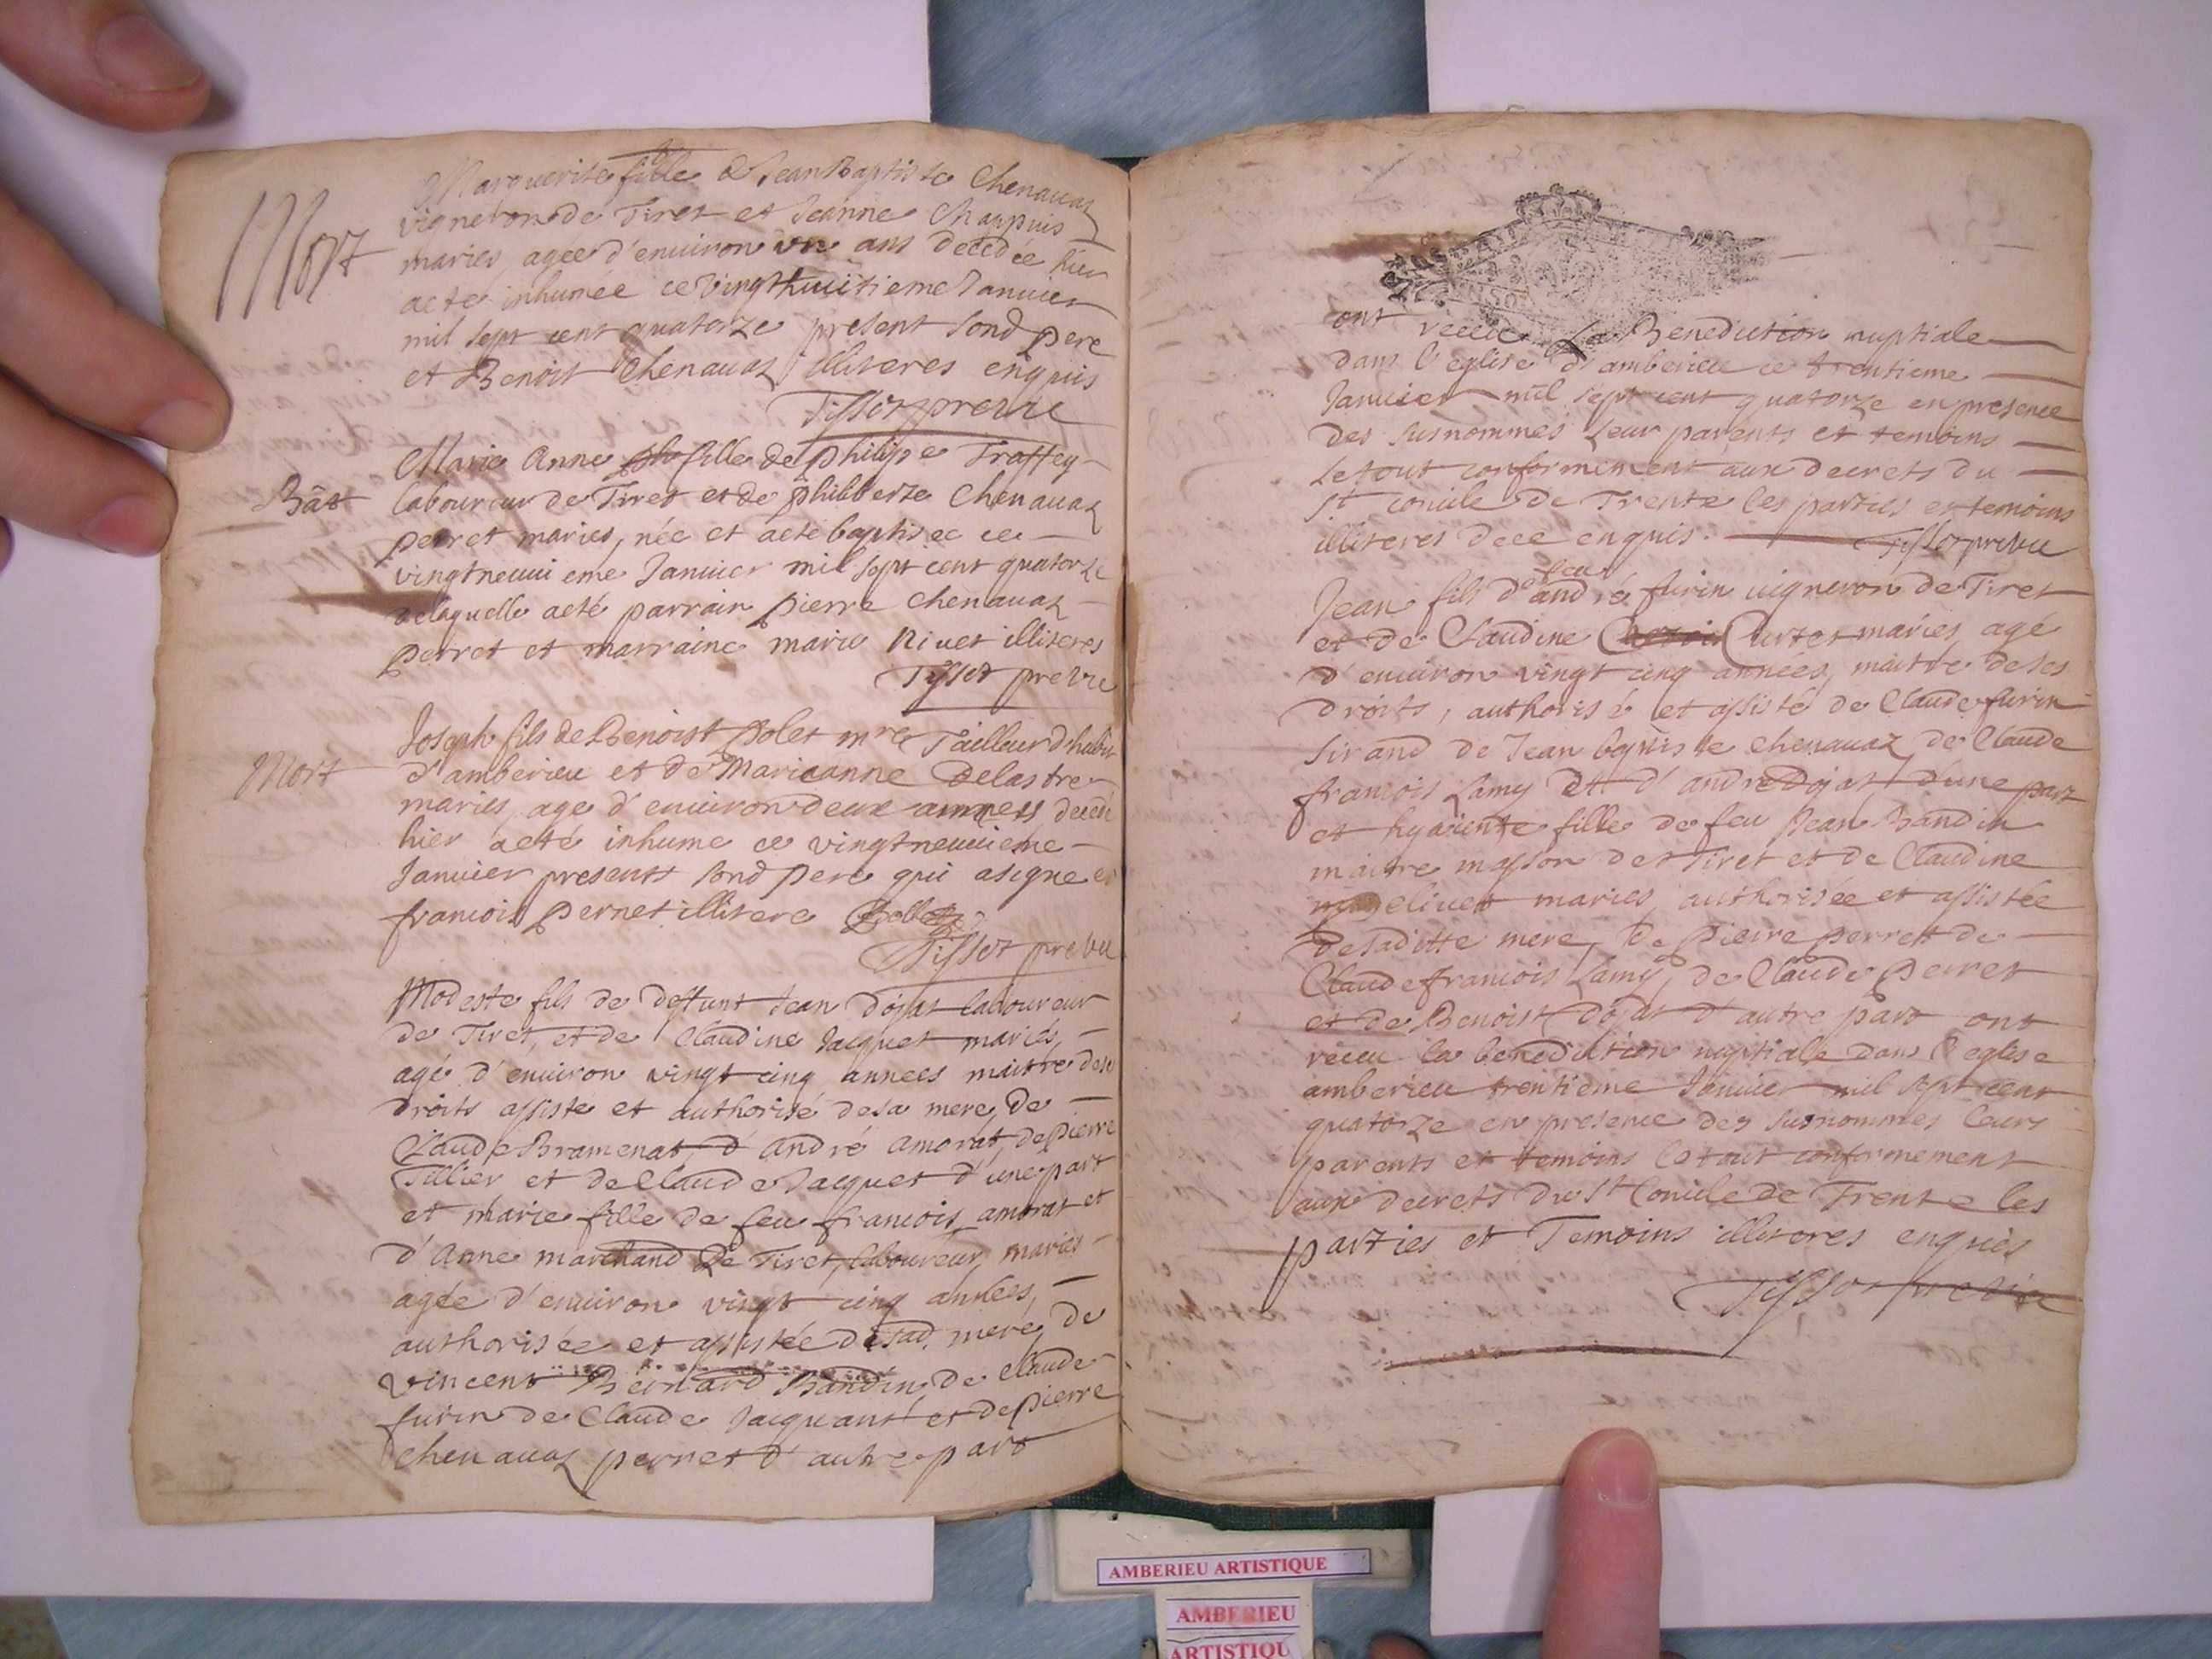 Marguerite fille de Jean Baptiste Chenauaz
Mort
vigneron de Tiret et Jeanne Chappuis
maries, agée d'enuiron un ans decedée hier
acte inhumée ce vingthuitieme Januier
mil sept cent quatorze present sond pere
et Benoist Chenauaz illiteres enquis
Tissot prebre
Marie Anne fille de philipe Traffey
Bât
laboureur de Tiret et de philiberte Chenauaz
perret maries, née et acté baptisee ce
vingtneuuieme Januier mil sept cent quatorze
delaquelle acté parrain pierre Chenauaz
perret et marraine marie Niuet illiteres
Tissot prebre
Joseph fils de Benoist Polet mre Tailleur d'habit
Mort
d'amberieu et de Marieanne Delastre
maries, age d'enuiron deux annees decedé
hier acté inhume ce vingtneuuieme
Januier presents sond pere qui asigne et
francois pernet illitere Pollet
Tissot prebre
Modeste fils de deffunt Jean Dojat laboureur
de Tiret, et de Claudine Jacquet mariés,
agé d'enuiron vingt cinq annees maitre dese
droits assiste et authorisé desa mere, de
Claude Bramenat, d'andré amorat, depierre
Tillier et de Claude Jacquet d'une part
et marie fille de feu francois amorat et
d'Anne marchand de Tiret, laboureur, mariés
agée d'enuiron vingt cinq années,
authorisée et assistée desad. mere, de
vincent Bernard Bandin, de Claude
furin de Claude Jacquant et depierre
chenauaz perret d'autre part
ont receu la Benediction nuptiale
dans l'eglise d'amberieu ce trentieme
Januier mil sept cent quatorze en presence
des susnommes leur parents et temoins
le tout conformement aux decrets du
st concile de Trente les parties et temoins
illiteres dece enquis. Tissot prebre
feu
Jean fils d'andré furin vigneron de Tiret
et de Claudine Curtet maries, agé
d'enuiron vingt cinq années, maitre deses
droits, authorisé et assisté de Claude furin
sirand de Jean baptiste chenauaz de Claude
francois Lamy et d'andre Dojat d'une part
et hyacinte fille de feu Jean Bandin
maitre masson de Tiret et de Claudine
maries, authorisée et assistée
desaditte mere, de pierre perret de
Claudefrancois Lamy, de Claude Perret
et de Benoist Dojat d'autre part ont
receu la benediction nuptiale dans l'eglise
amberieu trentieme Januier mil sept cent
quatorze en presence des susnommes leurs
parents et temoins le tout conformement
aux decrets du St Concile de Trente les
parties et Temoins illiteres enquis
Tissot prebre
AMBERIEU ARTISTIQUE
AMBERIEU
ARTISTIQU